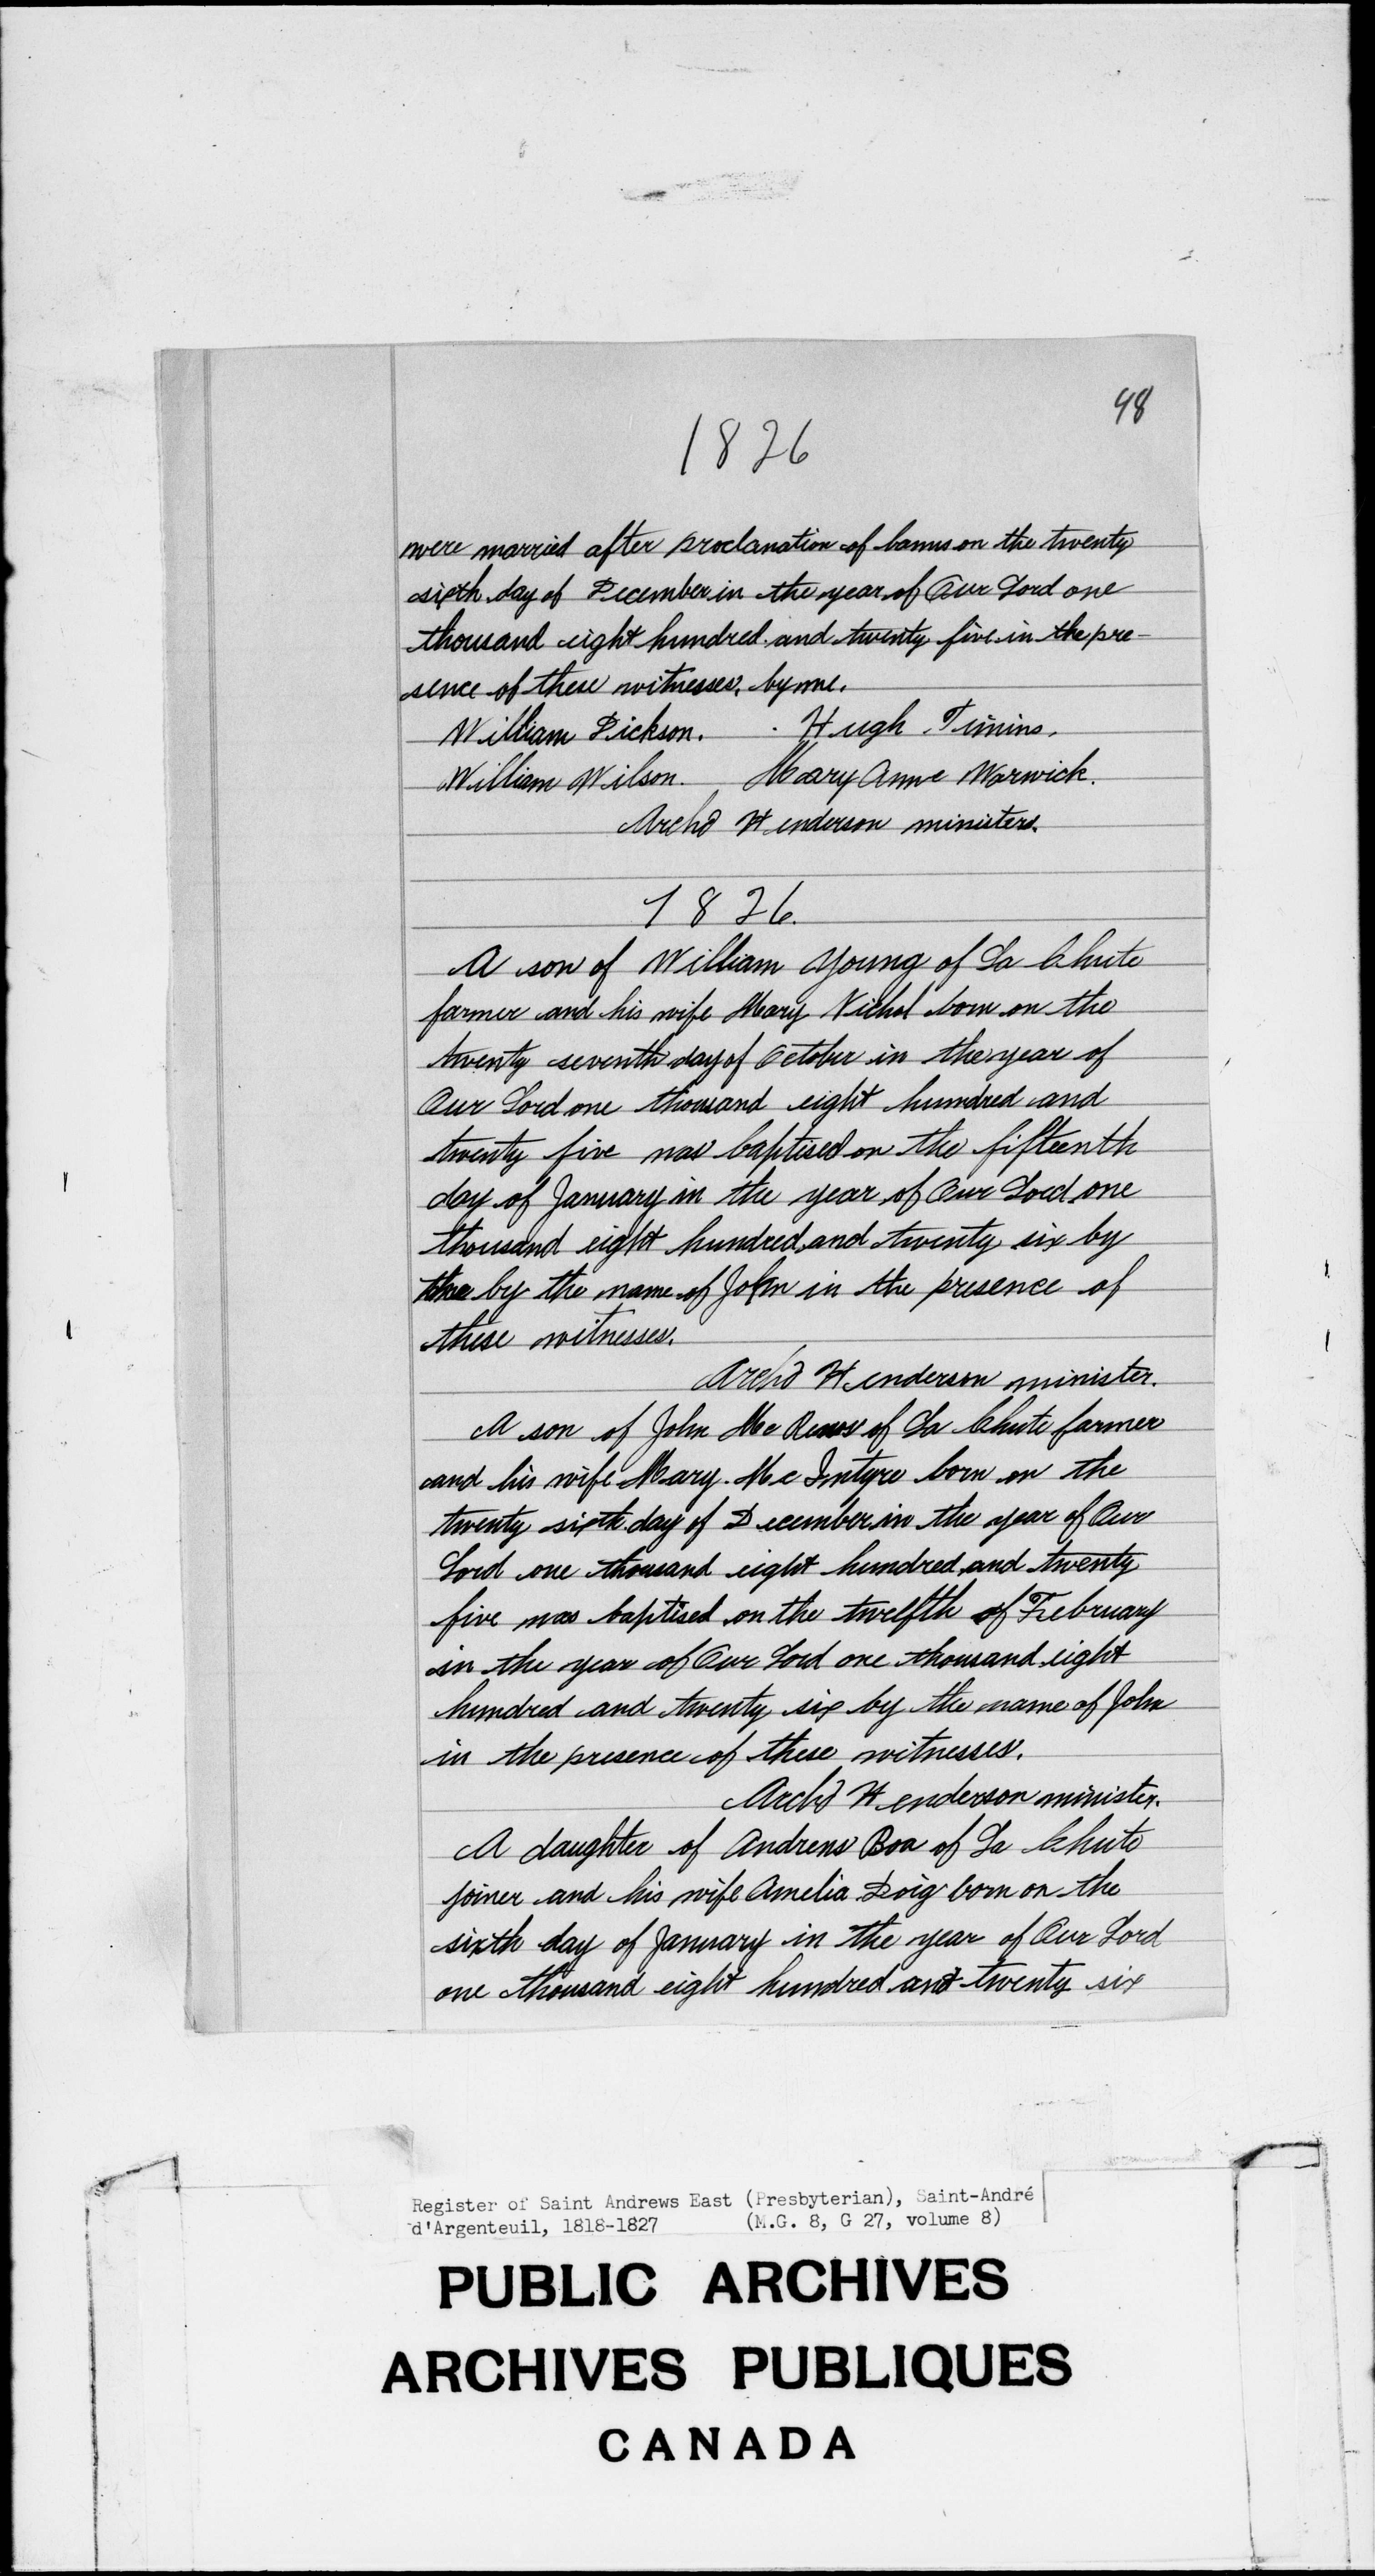 48
1826
were married after proclanation of banns on the twenty
sixth day of December in the year of Our Lord one
thousand eight hundred and twenty five in the pre-
sence of these witnesses, by me.
William Dickson. Hugh Timins.
William Wilson. Mary Anne Warwick.
Archd Henderson minister.
1826.
A son of William Young of La Chute
farmer and his wife Mary Nichol born on the
twenty seventh day of October in the year of
Our Lord one thousand eight hundred and
twenty five was baptised on the fifteenth
day of January in the year of Our Lord one
thousand eight hundred and twenty six by
by the name of John in the presence of
these witnesses.
Archd Henderson minister.
A son of John Mc of La Chute farmer
and his wife Mary Mc Intyre born on the
twenty sixth day of December in the year of Our
Lord one thousand eight hundred and twenty
five was baptised on the twelfth of February
in the year of Our Lord one thousand eight
hundred and twenty six by the name of John
in the presence of these witnesses.
Archd Henderson minister.
A daughter of Andrew Boa of La Chute
joiner and his wife Amelia Doig born on the
sixth day of January in the year of Our Lord
one thousand eight hundred and twenty six
Register of Saint Andrews East (Presbyterian), Saint-André
d'Argenteuil, 1818-1827 (M.G. 8, G 27, volume 8)
PUBLIC ARCHIVES
ARCHIVES PUBLIQUES
CANADA